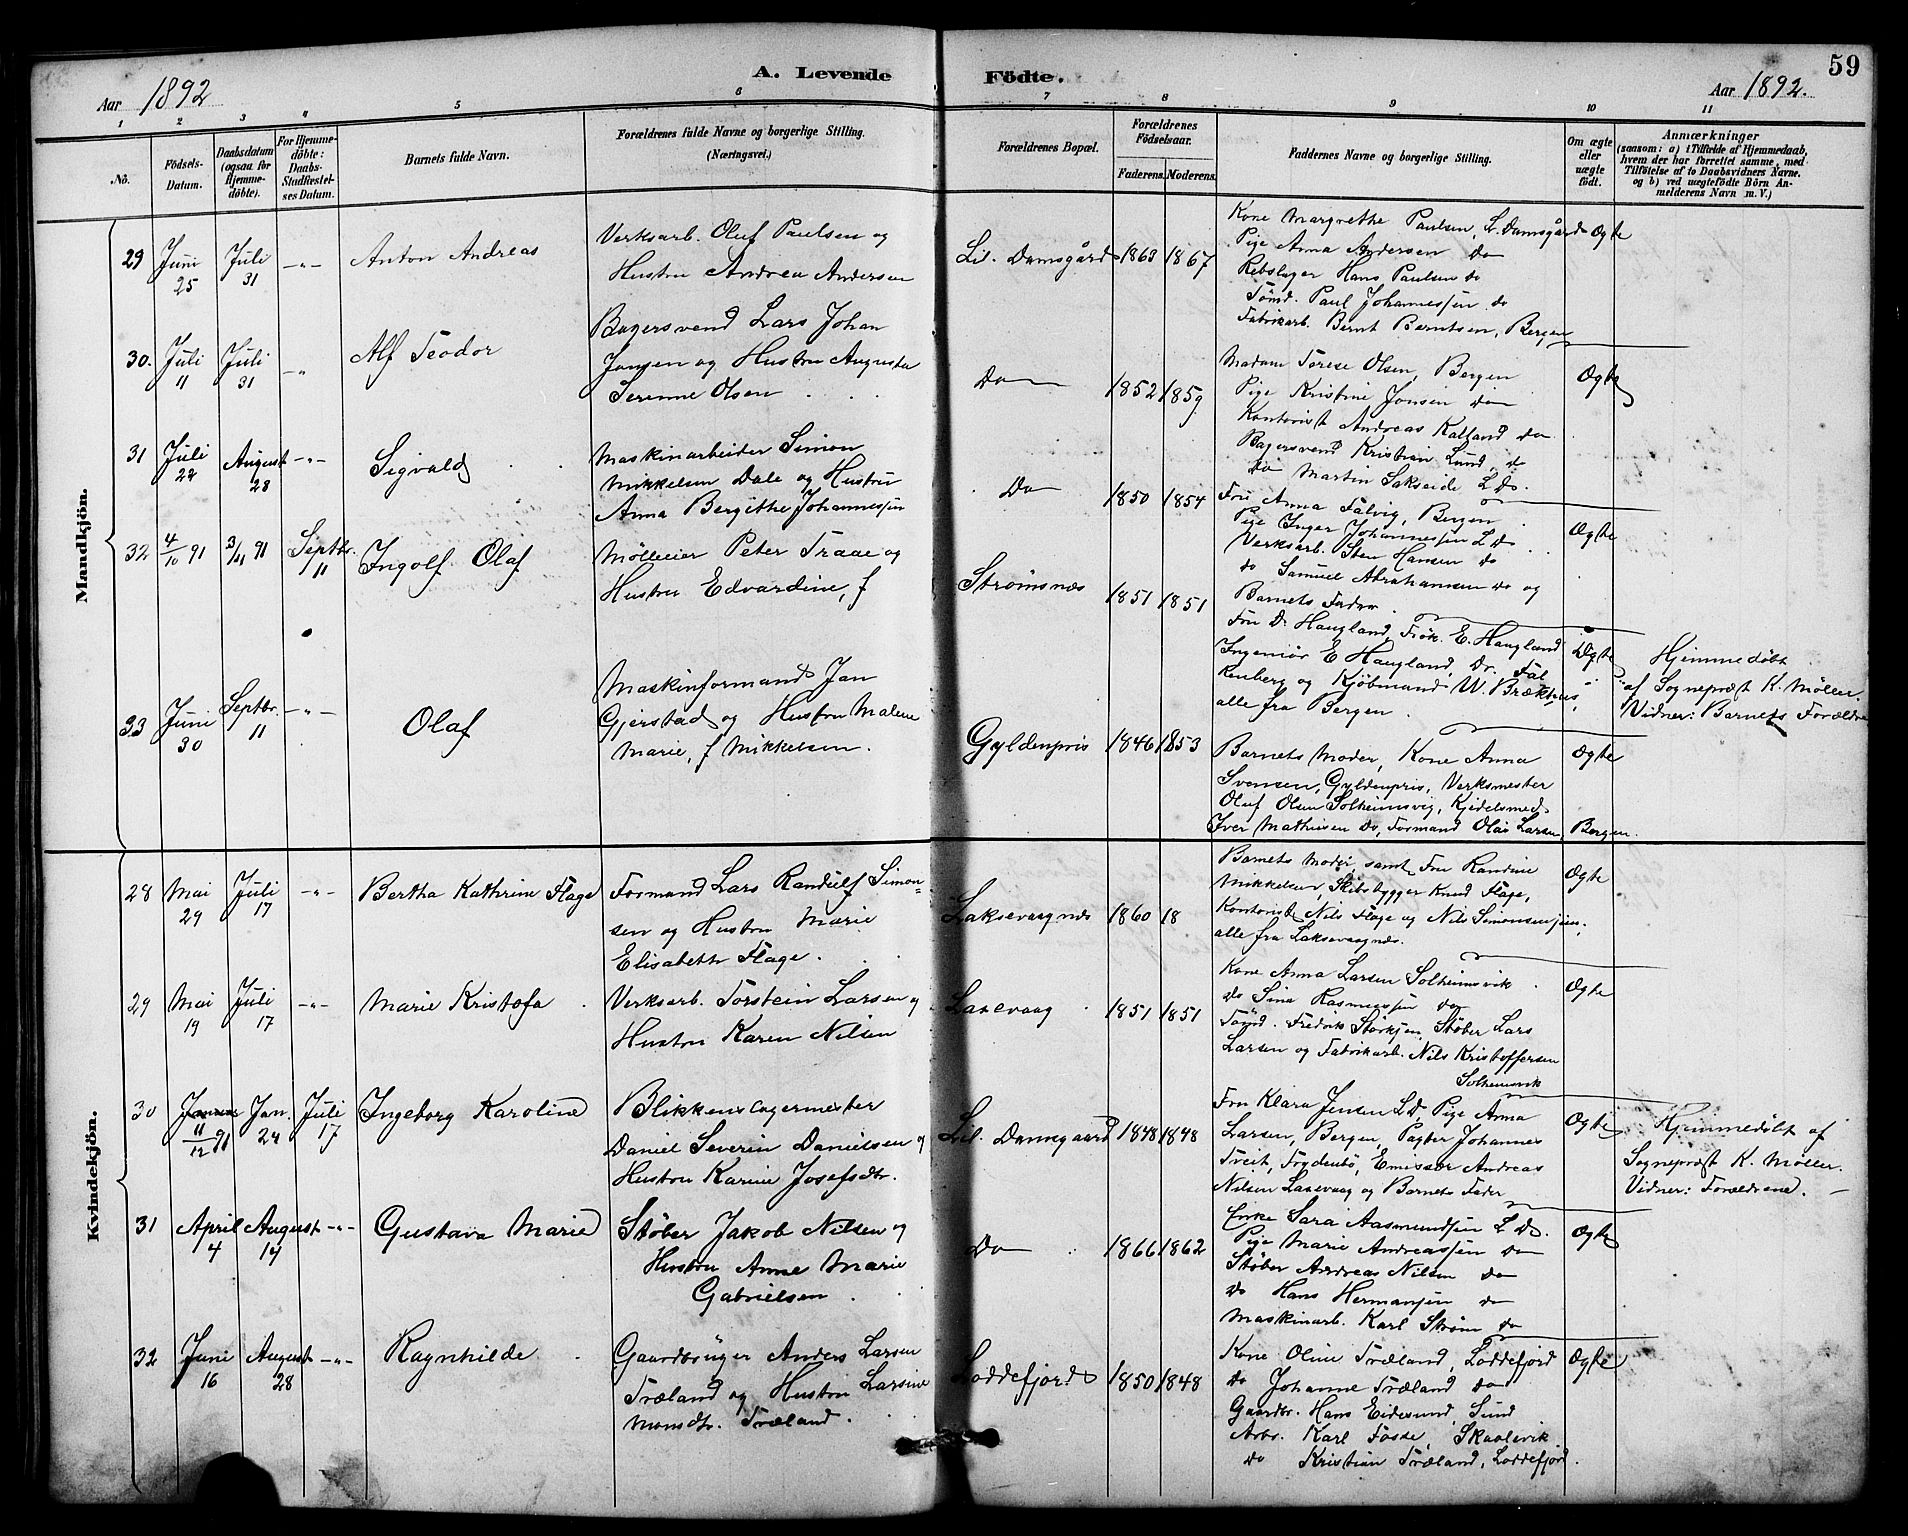 59
Aar 1892
A. Levende Fødte.
Aar 1892.
1 2 3 4 5 6 7 8 9 10 11
No.
Fødsels-Datum.
Daabsdatum (ogsaa for Hjemmedøbte).
For Hjemmedøbte: Daabs-Stadfæstelses Datum.
Barnets fulde Navn.
Forældrenes fulde Navne og borgerlige Stilling.
(Næringsvei.)
Forældrenes Bopæl.
Forældrenes Fødselsaar.
Faderens. Moderens.
Faddernes Navne og borgerlige Stilling.
Om ægte eller uægte født.
Anmærkninger
(saasom: a) i Tilfælde af Hjemmedaab,
hvem der har forrettet samme, med
Tilføielse af to Daabsvidners Navne.
og b) ved uægtefødte Börn An-
melderens Navn m. V.)
Mandkjön.
29 Juni 25 Juli 31 -"- Anton Andreas
Verksarb. Oluf Paulsen og
Hustru Andrea Andersen
Lil. Damsgård 1863 1867
Kone Margrethe Paulsen, L. Damsgård
Pige Anna Andersen do
Rebslager Hans Paulsen do
Tømd. Paul Johannessen do
Fabrikarb. Bernt Berntsen, Bergen
Ægte
30. Juli 11 Juli 31 -"- Alf Teodor
Bagersvend Lars Johan
Jansen og Hustru Augusta
Serenne Olsen
Do 1852 1859
Madam Terese Olsen, Bergen
Pige Kristine Jonsen do
Kontorist Andreas Kalland do
Bagersvend Kristian Lund do
do Martin Lakseide L.D.
Ægte
31 Juli 22 August 28 -"- Sigvald
Maskinarbeider Simon
Mikkelsen Dale og Hustru
Anna Bergithe Johannessen
Do 1850 1854
Fru Anna Falvig, Bergen
Pige Inger Johannessen L.D.
Verksarb. Sten Hansen do
do Samuel Abrahamsen do og
Barnets Fader
Ægte
32 4/10 91 3/11 91 Septbr. 11 Ingolf Olaf
Mølleeier Peter Traae og
Hustru Edvardine, f
Strømsnæs 1851 1851
Fru D. Haugland, Frøk. E. Haugland
Ingeniør E Haugland, Dr. Fal
kenberg og Kjøbmand W. Brækhus,
alle fra Bergen.
Ægte
Hjemmedøbt
af Sognepræst K. Møller.
Vidner: Barnets Forældre
33 Juni 30 Septbr. 11 -"- Olaf
Maskinformand Jan
Gjerstad og Hustru Malene
Marie, f Mikkelsen.
Gyldenpris 1846 1853
Barnets Moder, Kone Anna
Svensen, Gyldenpris, Verksmester
Oluf Olsen Solheimsvig, Kjedelsmed
Iver Mathisen do, Formand Olai Larsen, Bergen.
Ægte
Kvindekjön.
28 Mai 29 Juli 17 -"- Bertha Kathrine Flage
Formand Lars Randulf Simon-
sen og Hustru Marie
Elisabeth Flage.
Laksevaagnæs 1860 18
Barnets Moder samt Fru Randine
Mikkelsen, Skibsbygger Knud Flage,
Kontorist Nils Flage og Nils Simonsen jun.
alle fra Laksevaagnæs.
Ægte
29 Mai 19 Juli 17 -"- Marie Kristofa
Verksarb. Torstein Larsen og
Hustru Karen Nilsen
Laxevaag 1851 1851
Kone Anna Larsen Solheimsvik
do Sina Rasmussen do
Tømd. Fredrik Størksen, Støber Lars
Larsen og Fabrikarb. Nils Kristoffersen
Solheimsvik
Ægte
30 Januar 11/12 91 Jan. 24 Juli 17 Ingeborg Karoline
Blikkenslagermester
Daniel Severin Danielsen og
Hustru Karine Josefsdtr.
Lil. Damsgaard 1848 1848
Fru Klara Jensen L.D, Pige Anna
Larsen, Bergen, Pagter Johannes
Tveit, Frydenbø, Emissær Andreas
Nilsen Laxevaag og Barnets Fader
Ægte
Hjemmedøbt af
Sognepræst K. Møller.
Vidner: Forældrene.
31 April 4 August 14 -"- Gustava Marie
Støber Jakob Nilsen og
Hustru Anne Marie
Gabrielsen
Do 1866 1862
Enke Sara Aasmundsen L.D.
Pige Marie Andreassen do
Støber Andreas Nilsen do
do Hans Hermansen do
Maskinarb. Karl Strøm do
Ægte
32 Juni 16 August 28 -"- Ragnhilde
Gaardbruger Anders Larsen
Træland og Hustru Larsine
Monsdtr. Træland.
Loddefjord 1850 1848
Kone Oline Træland, Loddefjord
do Johanne Træland do
Gaardbr. Hans Eidesund, Sund
Arb. Karl Fosse, Skaalevik
do Kristian Træland, Loddefjord.
Ægte